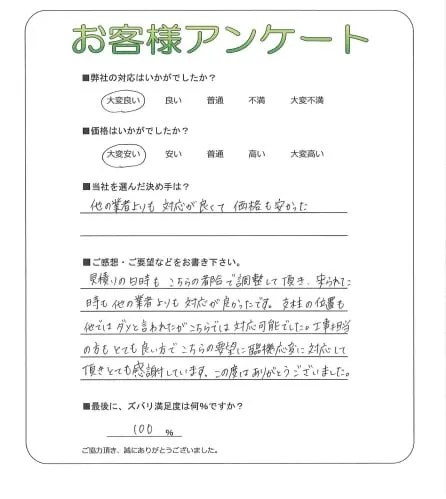 お客様アンケート
■弊社の対応はいかがでしたか?
大変良い 良い 普通 不満 大変不満
■価格はいかがでしたか?
大変安い 安い 普通 高い 大変高い
■当社を選んだ決め手は?
他の業者よりも 対応が良くて 価格も安かった
■ご感想・ご要望などをお書き下さい。
見積りの日時も こちらの都合で調整して頂き、来られた
時も他の業者よりも 対応が良かったです。支柱の位置も
他ではダメと言われたがこちらでは対応可能でした。工事担当
の方もとても良い方でこちらの要望に臨機応変に対応して
頂きとても感謝しています。この度はありがとうございました。
■最後に、ズバリ満足度は何%ですか?
100 %
ご協力頂き、誠にありがとうございました。